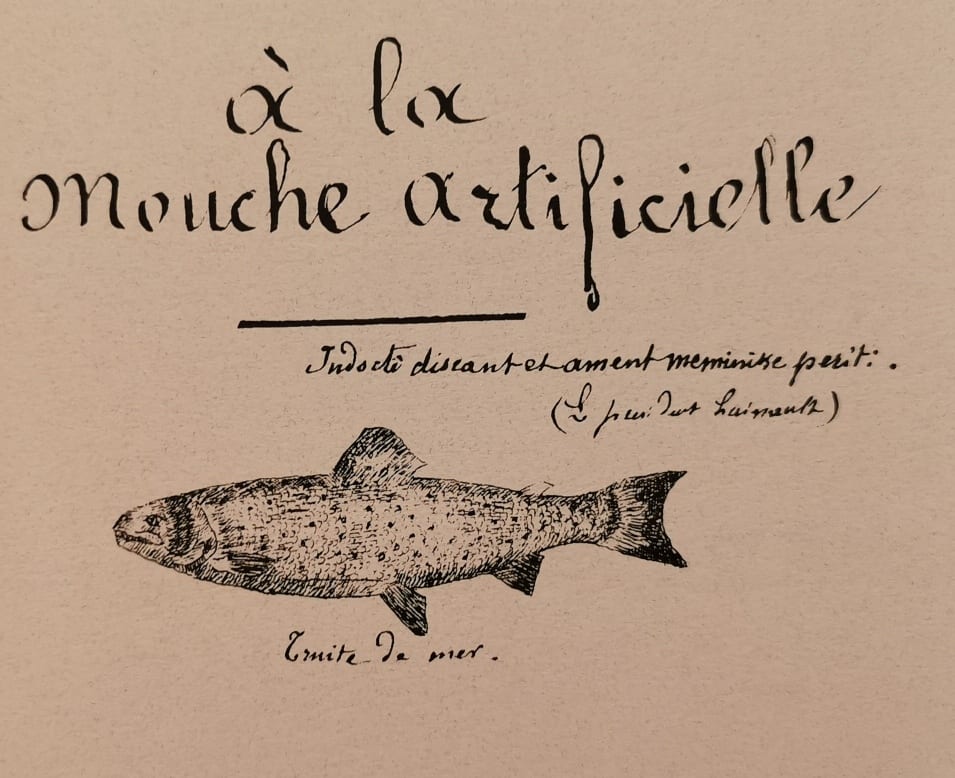 à la
Mouche artificielle
Indocti discant et ament meminisse periti.
(Le président Hainault)
Truite de mer.